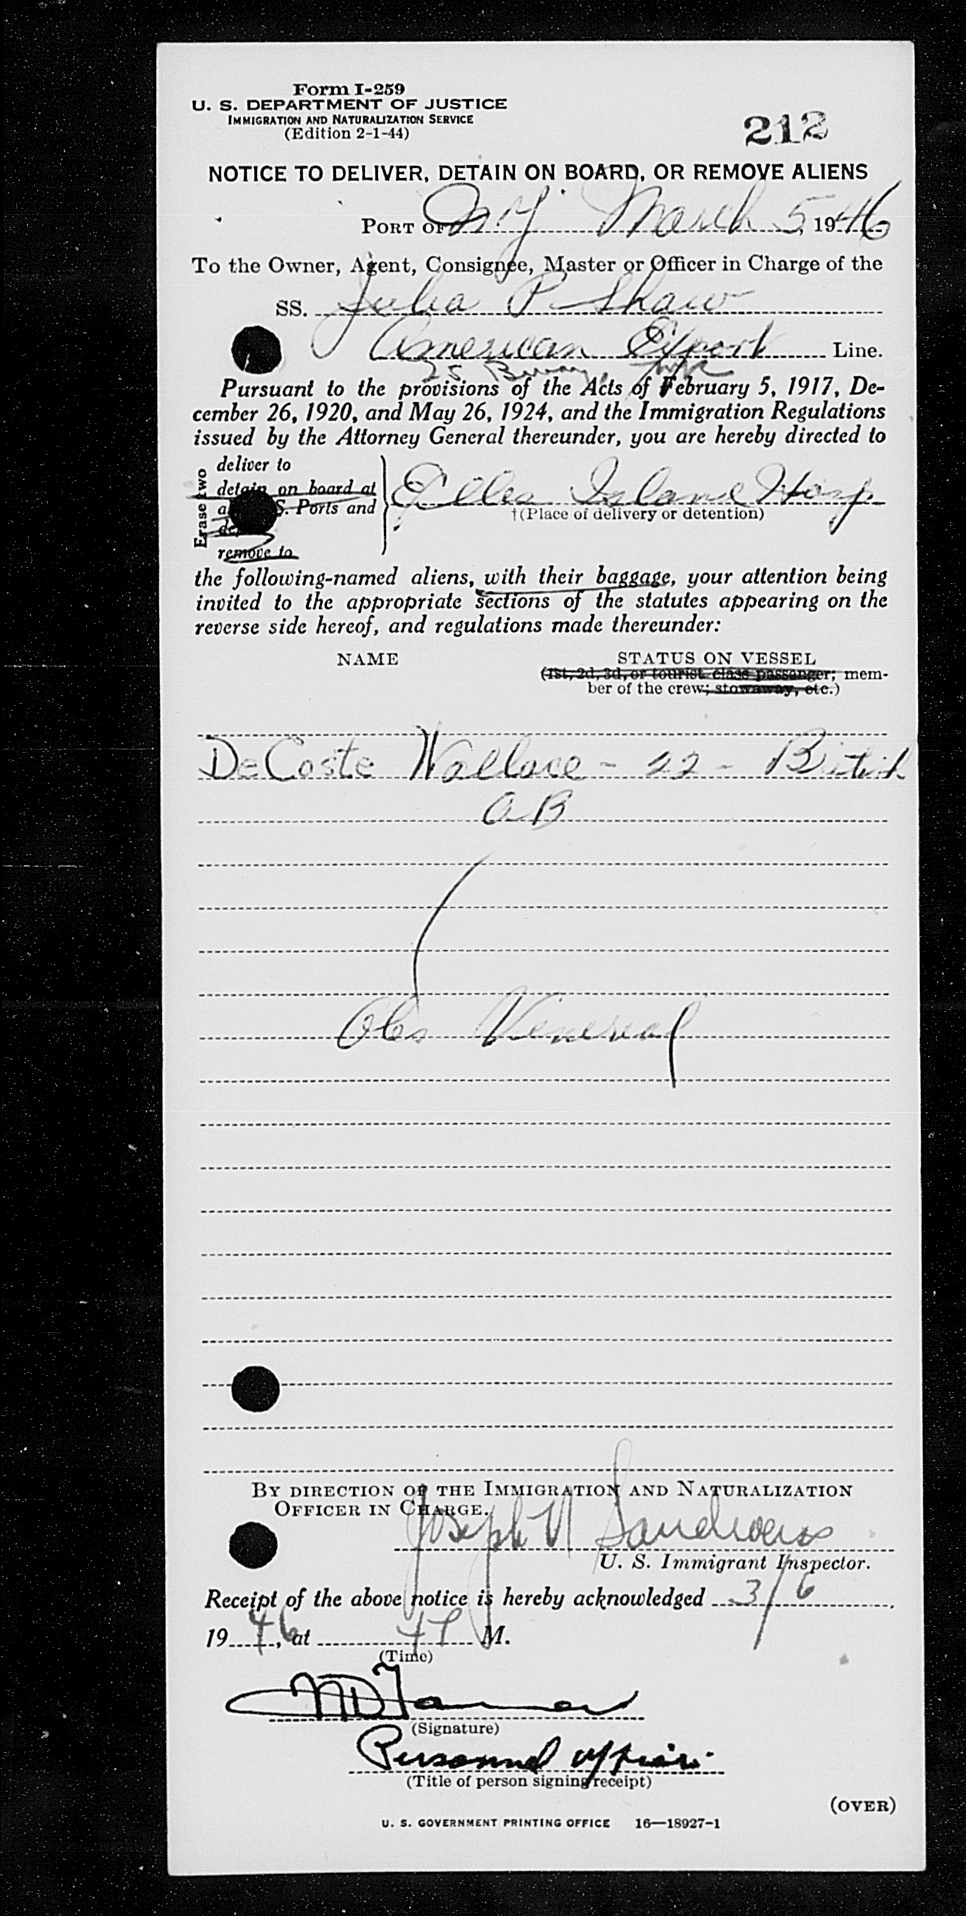 Form I-259
U. S. DEPARTMENT OF JUSTICE
IMMIGRATION AND NATURALIZATION SERVICE
(Edition 2-1-44)
212
NOTICE TO DELIVER, DETAIN ON BOARD, OR REMOVE ALIENS
PORT OF NY March 5, 1946
To the Owner, Agent, Consignee, Master or Officer in Charge of the
SS. Julia P. Shaw
American Export Line.
25 Bway
Pursuant to the provisions of the Acts of February 5, 1917, De-
cember 26, 1920, and May 26, 1924, and the Immigration Regulations
issued by the Attorney General thereunder, you are hereby directed to
Erase two
deliver to
detain on board at
S. Ports and
remove to
Elles Island Hosp.
†(Place of delivery or detention)
the following-named aliens, with their baggage, your attention being
invited to the appropriate sections of the statutes appearing on the
reverse side hereof, and regulations made thereunder:
NAME STATUS ON VESSEL
(1st, 2d, 3d, or tourist class passenger; mem-
ber of the crew; stowaway, etc.)
DeCoste Wallace - 22 - British
AB
Obs Venereal
BY DIRECTION OF THE IMMIGRATION AND NATURALIZATION
OFFICER IN CHARGE.
Joseph N
U. S. Immigrant Inspector.
Receipt of the above notice is hereby acknowledged 3/6,
1946, at 4 P M.
(Time)
(Signature)
Personnel Officer.
(Title of person signing receipt)
(OVER)
U. S. GOVERNMENT PRINTING OFFICE 16—18927-1